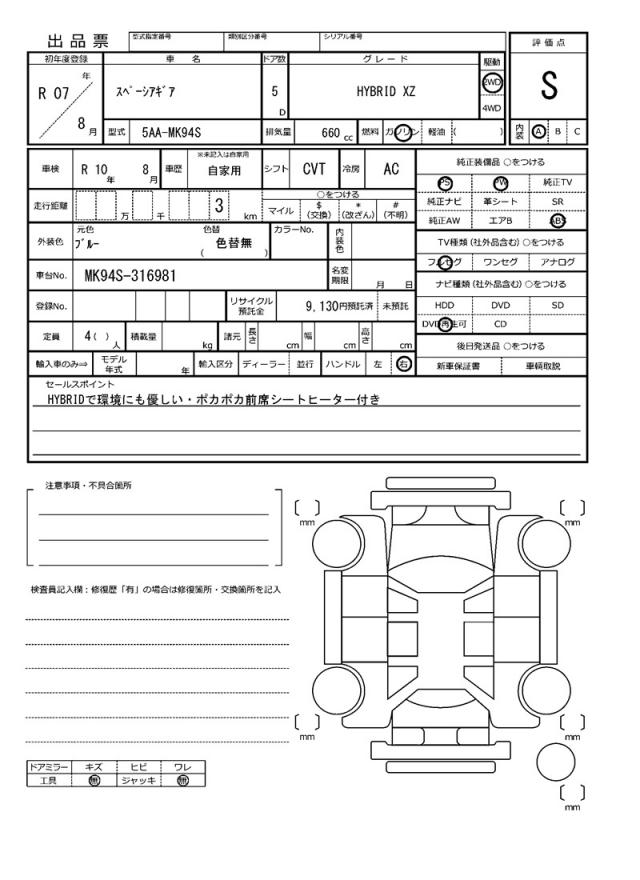 出品票
型式指定番号 類別区分番号 シリアル番号
初年度登録 車名 ドア数 グレード 駆動 評価点
R 07 年 8 月
ｽﾍﾟｰｼｱｷﾞｱ 5 D HYBRID XZ 2WD 4WD S
型式 5AA-MK94S 排気量 660 cc 燃料 ガソリン 軽油 ( ) 内装 A B C
車検 R 10 年 8 月 車歴 ※未記入は自家用 自家用 シフト CVT 冷房 AC
走行距離 万 千 3 km ○をつける
マイル $ (交換) * (改ざん) # (不明)
外装色 元色 ﾌﾞﾙｰ 色替 色替無 ( ) カラーNo. 内装色
車台No. MK94S-316981 名変期限 月 日
登録No. リサイクル預託金 9,130円預託済 未預託
定員 4( ) 人 積載量 kg 諸元 長さ cm 幅 cm 高さ cm
輸入車のみ⇒ モデル年式 年 輸入区分 ディーラー 並行 ハンドル 左 右
純正装備品 ○をつける
PS PW 純正TV
純正ナビ 革シート SR
純正AW エアB ABS
TV種類 (社外品含む) ○をつける
フルセグ ワンセグ アナログ
ナビ種類 (社外品含む) ○をつける
HDD DVD SD
DVD再生可 CD
後日発送品 ○をつける
新車保証書 車輌取説
セールスポイント
HYBRIDで環境にも優しい・ポカポカ前席シートヒーター付き
注意事項・不具合箇所
検査員記入欄：修復歴「有」の場合は修復箇所・交換箇所を記入
mm mm
mm mm
mm
ドアミラー キズ ヒビ ワレ
工具 無 ジャッキ 無